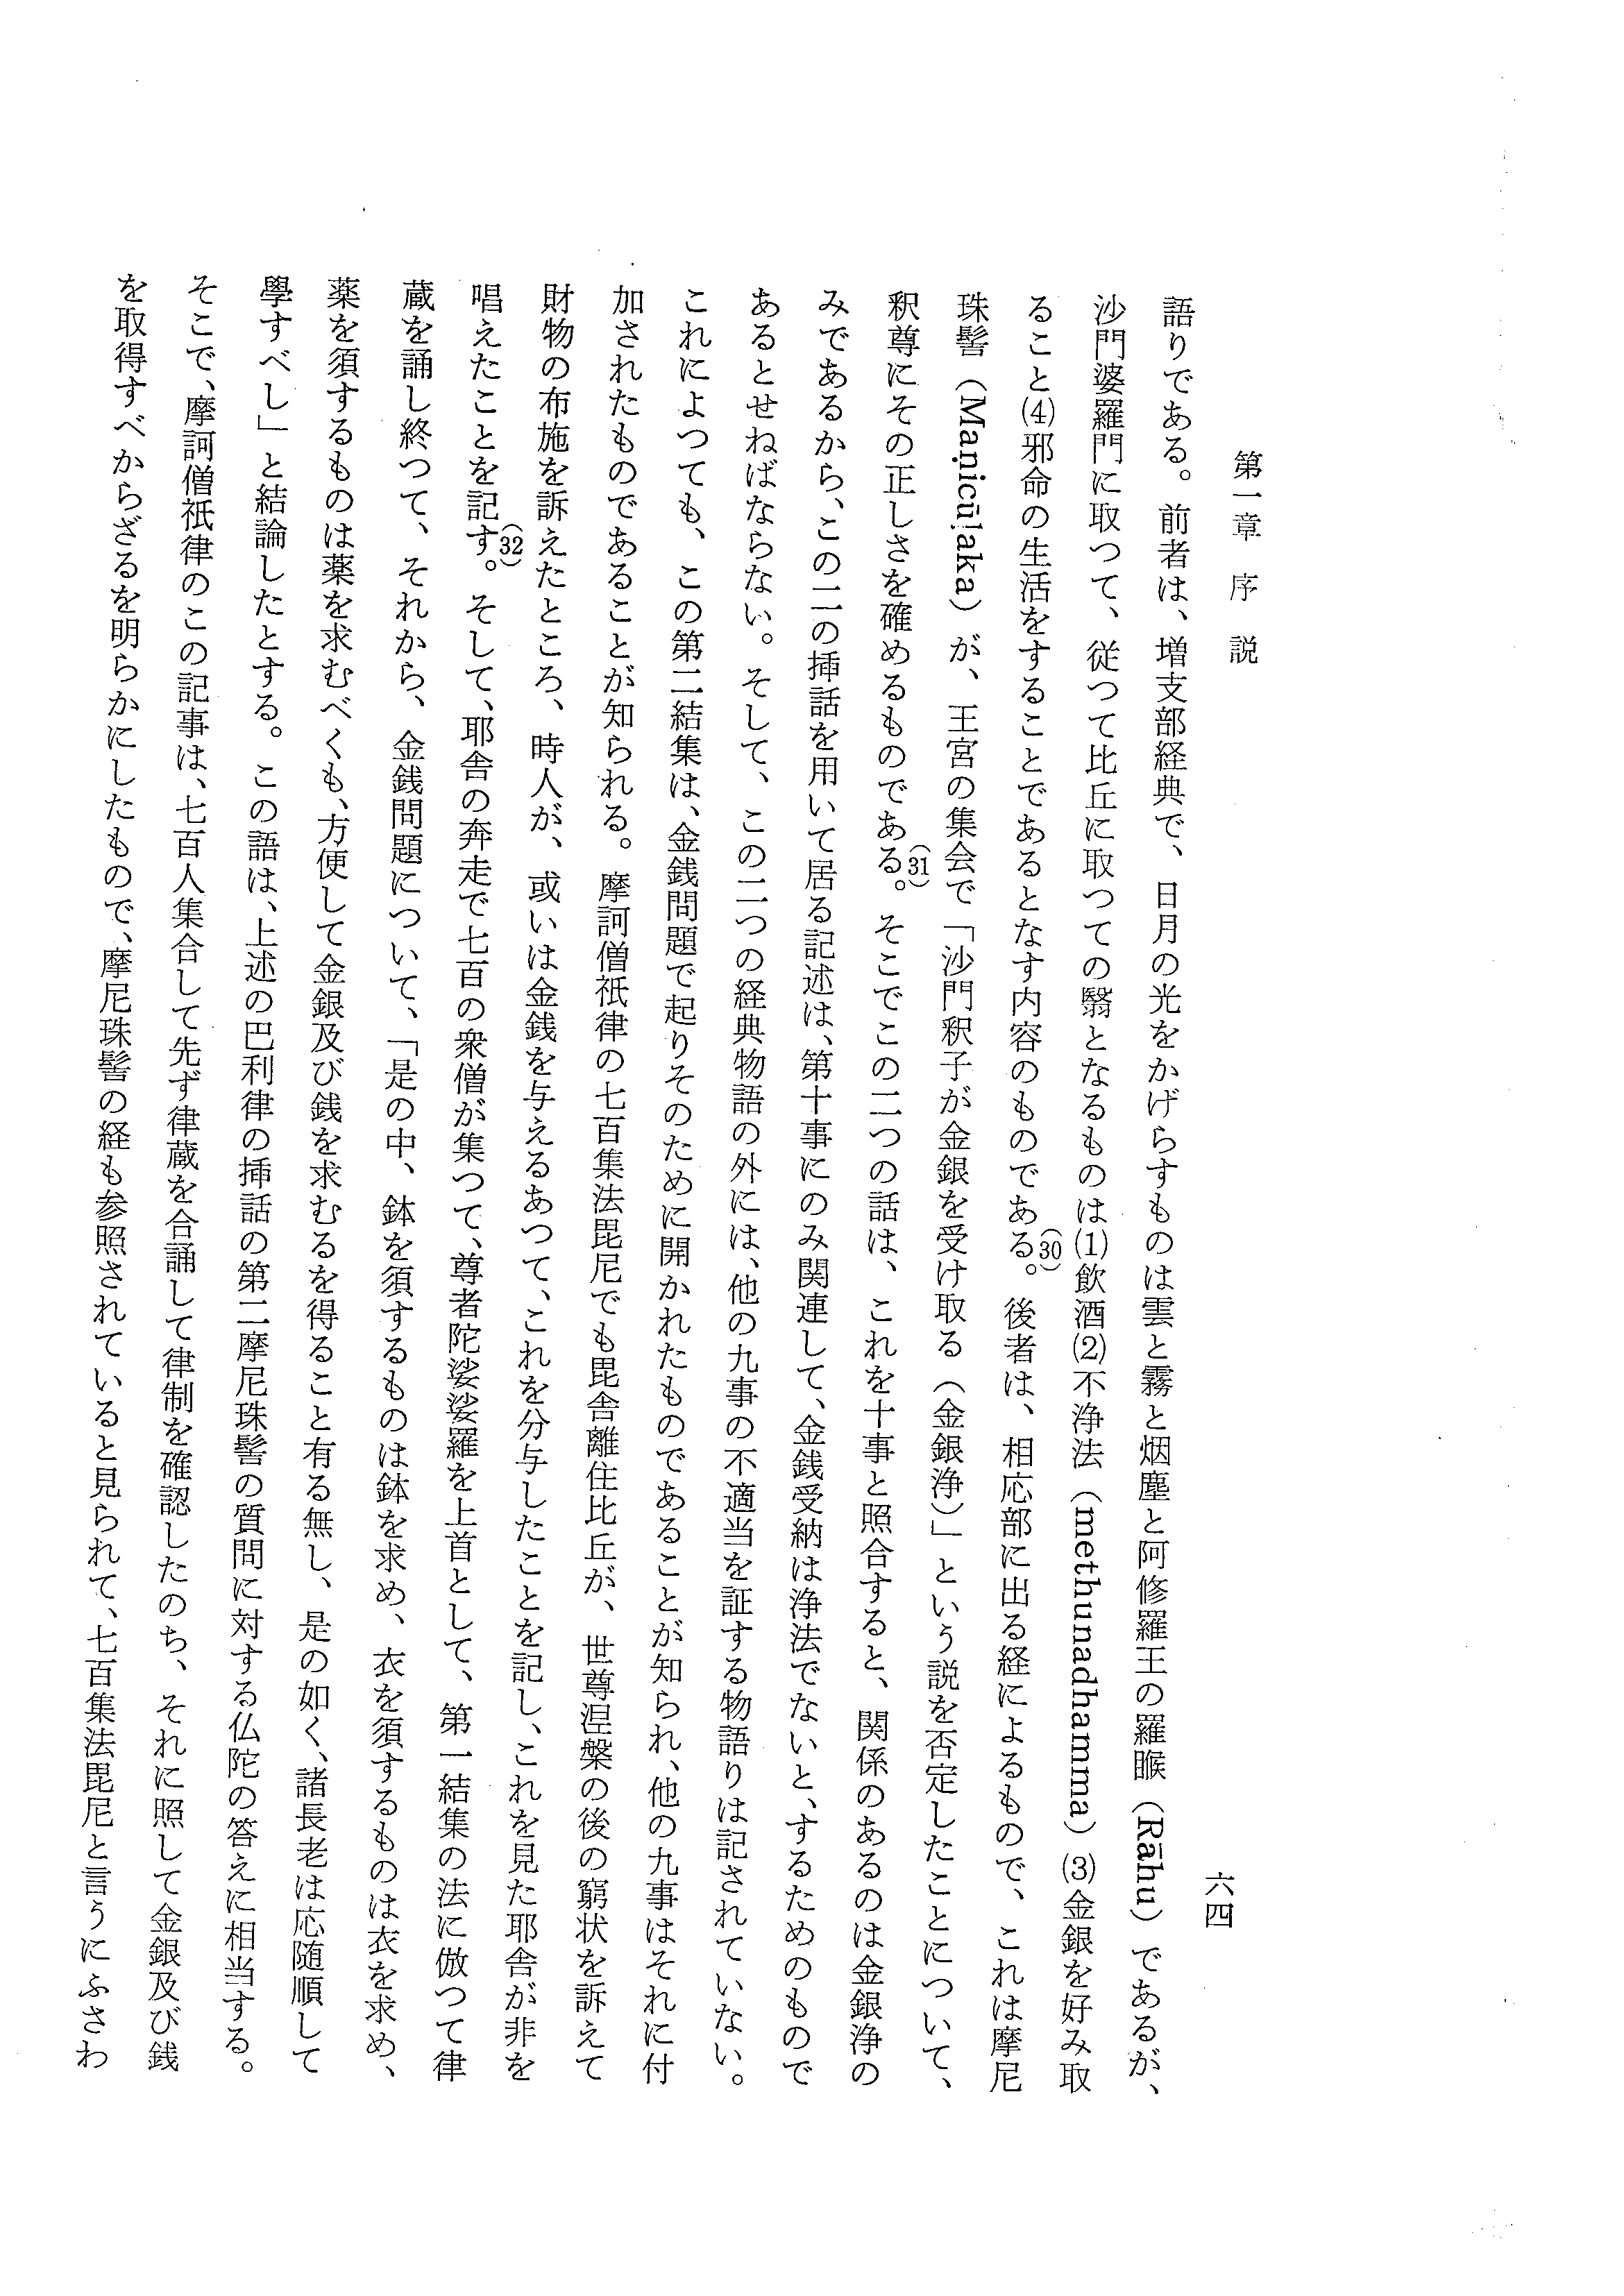 第一章　序　説
六四
語りである。前者は、増支部経典で、日月の光をかげらすものは雲と霧と烟塵と阿修羅王の羅睺（Rāhu）であるが、
沙門婆羅門に取つて、従つて比丘に取つての翳となるものは(1)飲酒(2)不浄法（methunadhamma）(3)金銀を好み取
ること(4)邪命の生活をすることであるとなす内容のものである。(30)後者は、相応部に出る経によるもので、これは摩尼
珠髻（Maṇicūḷaka）が、王宮の集会で「沙門釈子が金銀を受け取る（金銀浄）」という説を否定したことについて、
釈尊にその正しさを確めるものである。(31)そこでこの二つの話は、これを十事と照合すると、関係のあるのは金銀浄の
みであるから、この二の挿話を用いて居る記述は、第十事にのみ関連して、金銭受納は浄法でないと、するためのもので
あるとせねばならない。そして、この二つの経典物語の外には、他の九事の不適当を証する物語りは記されていない。
これによつても、この第二結集は、金銭問題で起りそのために開かれたものであることが知られ、他の九事はそれに付
加されたものであることが知られる。摩訶僧祇律の七百集法毘尼でも毘舎離住比丘が、世尊涅槃の後の窮状を訴えて
財物の布施を訴えたところ、時人が、或いは金銭を与えるあつて、これを分与したことを記し、これを見た耶舎が非を
唱えたことを記す。(32)そして、耶舎の奔走で七百の衆僧が集つて、尊者陀娑娑羅を上首として、第一結集の法に倣つて律
蔵を誦し終つて、それから、金銭問題について、「是の中、鉢を須するものは鉢を求め、衣を須するものは衣を求め、
薬を須するものは薬を求むべくも、方便して金銀及び銭を求むるを得ること有る無し、是の如く、諸長老は応随順して
學すべし」と結論したとする。この語は、上述の巴利律の挿話の第二摩尼珠髻の質問に対する仏陀の答えに相当する。
そこで、摩訶僧祇律のこの記事は、七百人集合して先ず律蔵を合誦して律制を確認したのち、それに照して金銀及び銭
を取得すべからざるを明らかにしたもので、摩尼珠髻の経も参照されていると見られて、七百集法毘尼と言うにふさわ